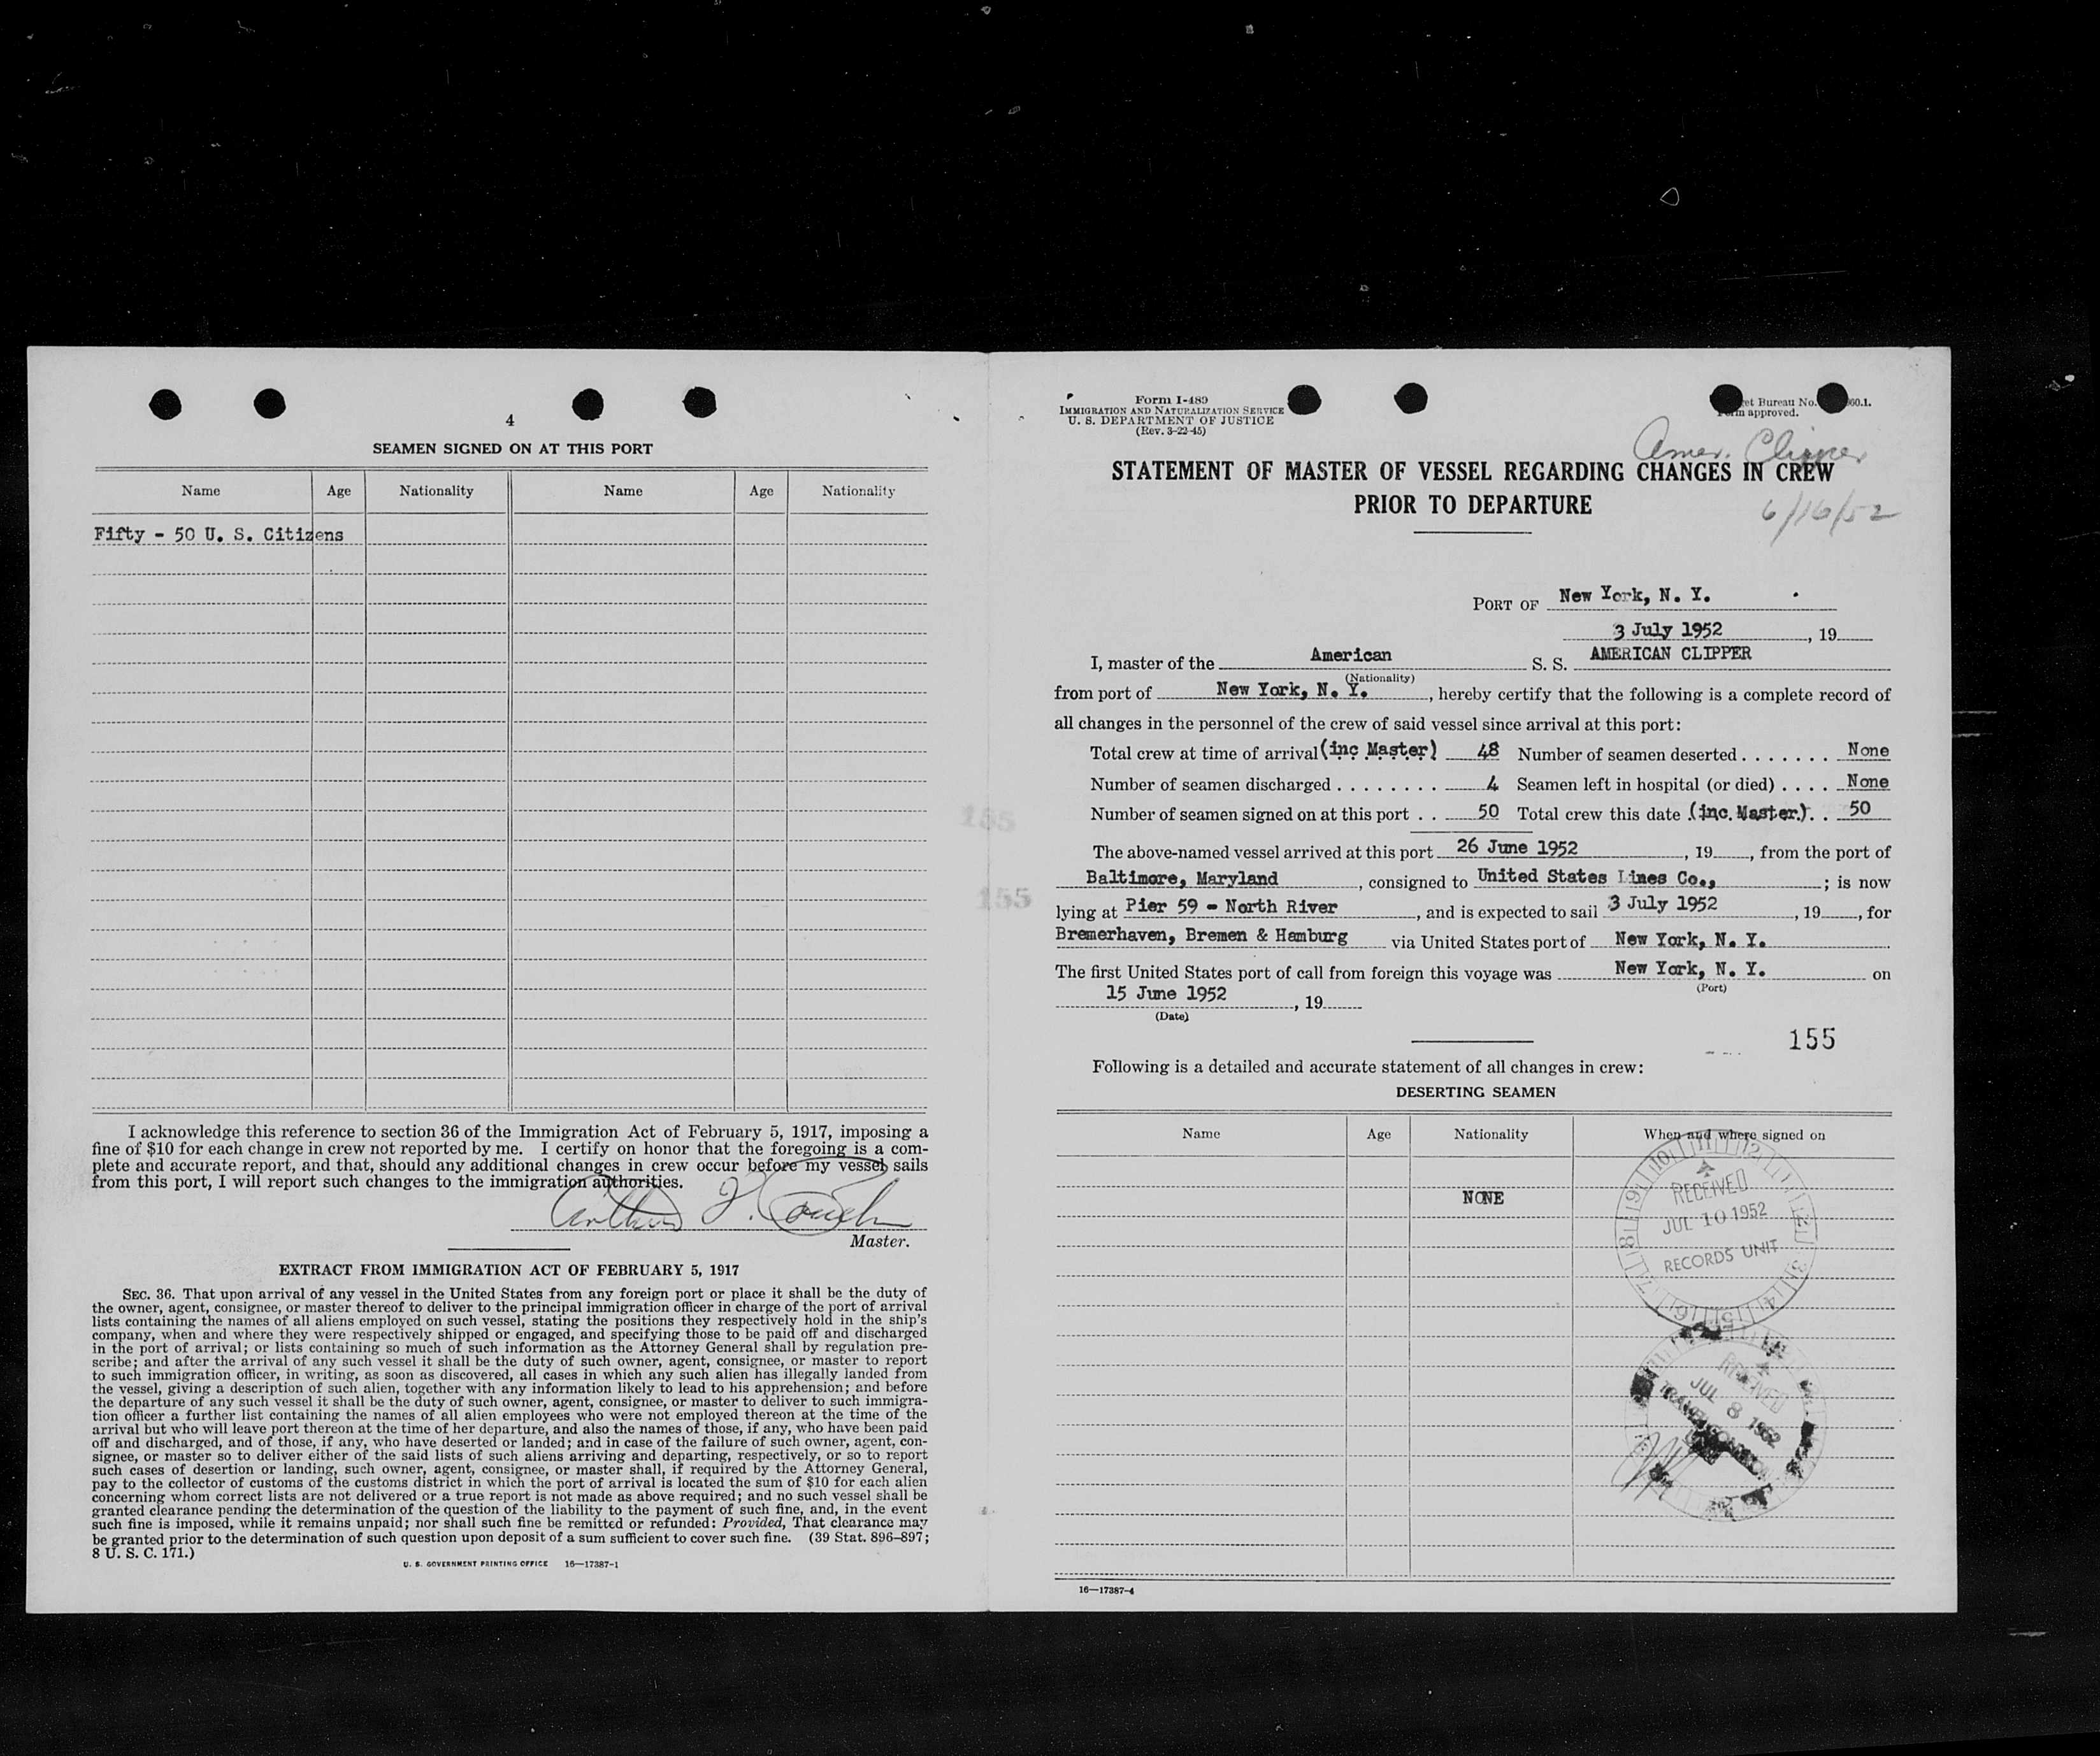 4
SEAMEN SIGNED ON AT THIS PORT
Name Age Nationality Name Age Nationality
Fifty - 50 U. S. Citizens
I acknowledge this reference to section 36 of the Immigration Act of February 5, 1917, imposing a
fine of $10 for each change in crew not reported by me. I certify on honor that the foregoing is a com-
plete and accurate report, and that, should any additional changes in crew occur before my vessel sails
from this port, I will report such changes to the immigration authorities.
Arthur
Master.
EXTRACT FROM IMMIGRATION ACT OF FEBRUARY 5, 1917
SEC. 36. That upon arrival of any vessel in the United States from any foreign port or place it shall be the duty of
the owner, agent, consignee, or master thereof to deliver to the principal immigration officer in charge of the port of arrival
lists containing the names of all aliens employed on such vessel, stating the positions they respectively hold in the ship's
company, when and where they were respectively shipped or engaged, and specifying those to be paid off and discharged
in the port of arrival; or lists containing so much of such information as the Attorney General shall by regulation pre-
scribe; and after the arrival of any such vessel it shall be the duty of such owner, agent, consignee, or master to report
to such immigration officer, in writing, as soon as discovered, all cases in which any such alien has illegally landed from
the vessel, giving a description of such alien, together with any information likely to lead to his apprehension; and before
the departure of any such vessel it shall be the duty of such owner, agent, consignee, or master to deliver to such immigra-
tion officer a further list containing the names of all alien employees who were not employed thereon at the time of the
arrival but who will leave port thereon at the time of her departure, and also the names of those, if any, who have been paid
off and discharged, and of those, if any, who have deserted or landed; and in case of the failure of such owner, agent, con-
signee, or master so to deliver either of the said lists of such aliens arriving and departing, respectively, or so to report
such cases of desertion or landing, such owner, agent, consignee, or master shall, if required by the Attorney General,
pay to the collector of customs of the customs district in which the port of arrival is located the sum of $10 for each alien
concerning whom correct lists are not delivered or a true report is not made as above required; and no such vessel shall be
granted clearance pending the determination of the question of the liability to the payment of such fine, and, in the event
such fine is imposed, while it remains unpaid; nor shall such fine be remitted or refunded: Provided, That clearance may
be granted prior to the determination of such question upon deposit of a sum sufficient to cover such fine. (39 Stat. 896–897;
8 U. S. C. 171.)
U. S. GOVERNMENT PRINTING OFFICE 16—17387-1
155
155
Form I-489
IMMIGRATION AND NATURALIZATION SERVICE
U. S. DEPARTMENT OF JUSTICE
(Rev. 3-22-45)
et Bureau No. 60.1.
approved.
Amer. Clipper
STATEMENT OF MASTER OF VESSEL REGARDING CHANGES IN CREW
PRIOR TO DEPARTURE
6/16/52
PORT OF New York, N. Y.
3 July 1952, 19
I, master of the American S. S. AMERICAN CLIPPER
(Nationality)
from port of New York, N. Y., hereby certify that the following is a complete record of
all changes in the personnel of the crew of said vessel since arrival at this port:
Total crew at time of arrival (inc Master) 48 Number of seamen deserted . . . . . . . None
Number of seamen discharged . . . . . . . . 4 Seamen left in hospital (or died) . . . . None
Number of seamen signed on at this port . . 50 Total crew this date (inc. Master) . . 50
The above-named vessel arrived at this port 26 June 1952, 19, from the port of
Baltimore, Maryland, consigned to United States Lines Co.,; is now
lying at Pier 59 - North River, and is expected to sail 3 July 1952, 19, for
Bremerhaven, Bremen & Hamburg via United States port of New York, N. Y.
The first United States port of call from foreign this voyage was New York, N. Y. on
(Port)
15 June 1952, 19
(Date)
155
Following is a detailed and accurate statement of all changes in crew:
DESERTING SEAMEN
Name Age Nationality When and where signed on
NONE
RECEIVED
JUL 10 1952
RECORDS UNIT
RECEIVED
JUL 8 1952
16—17387-4